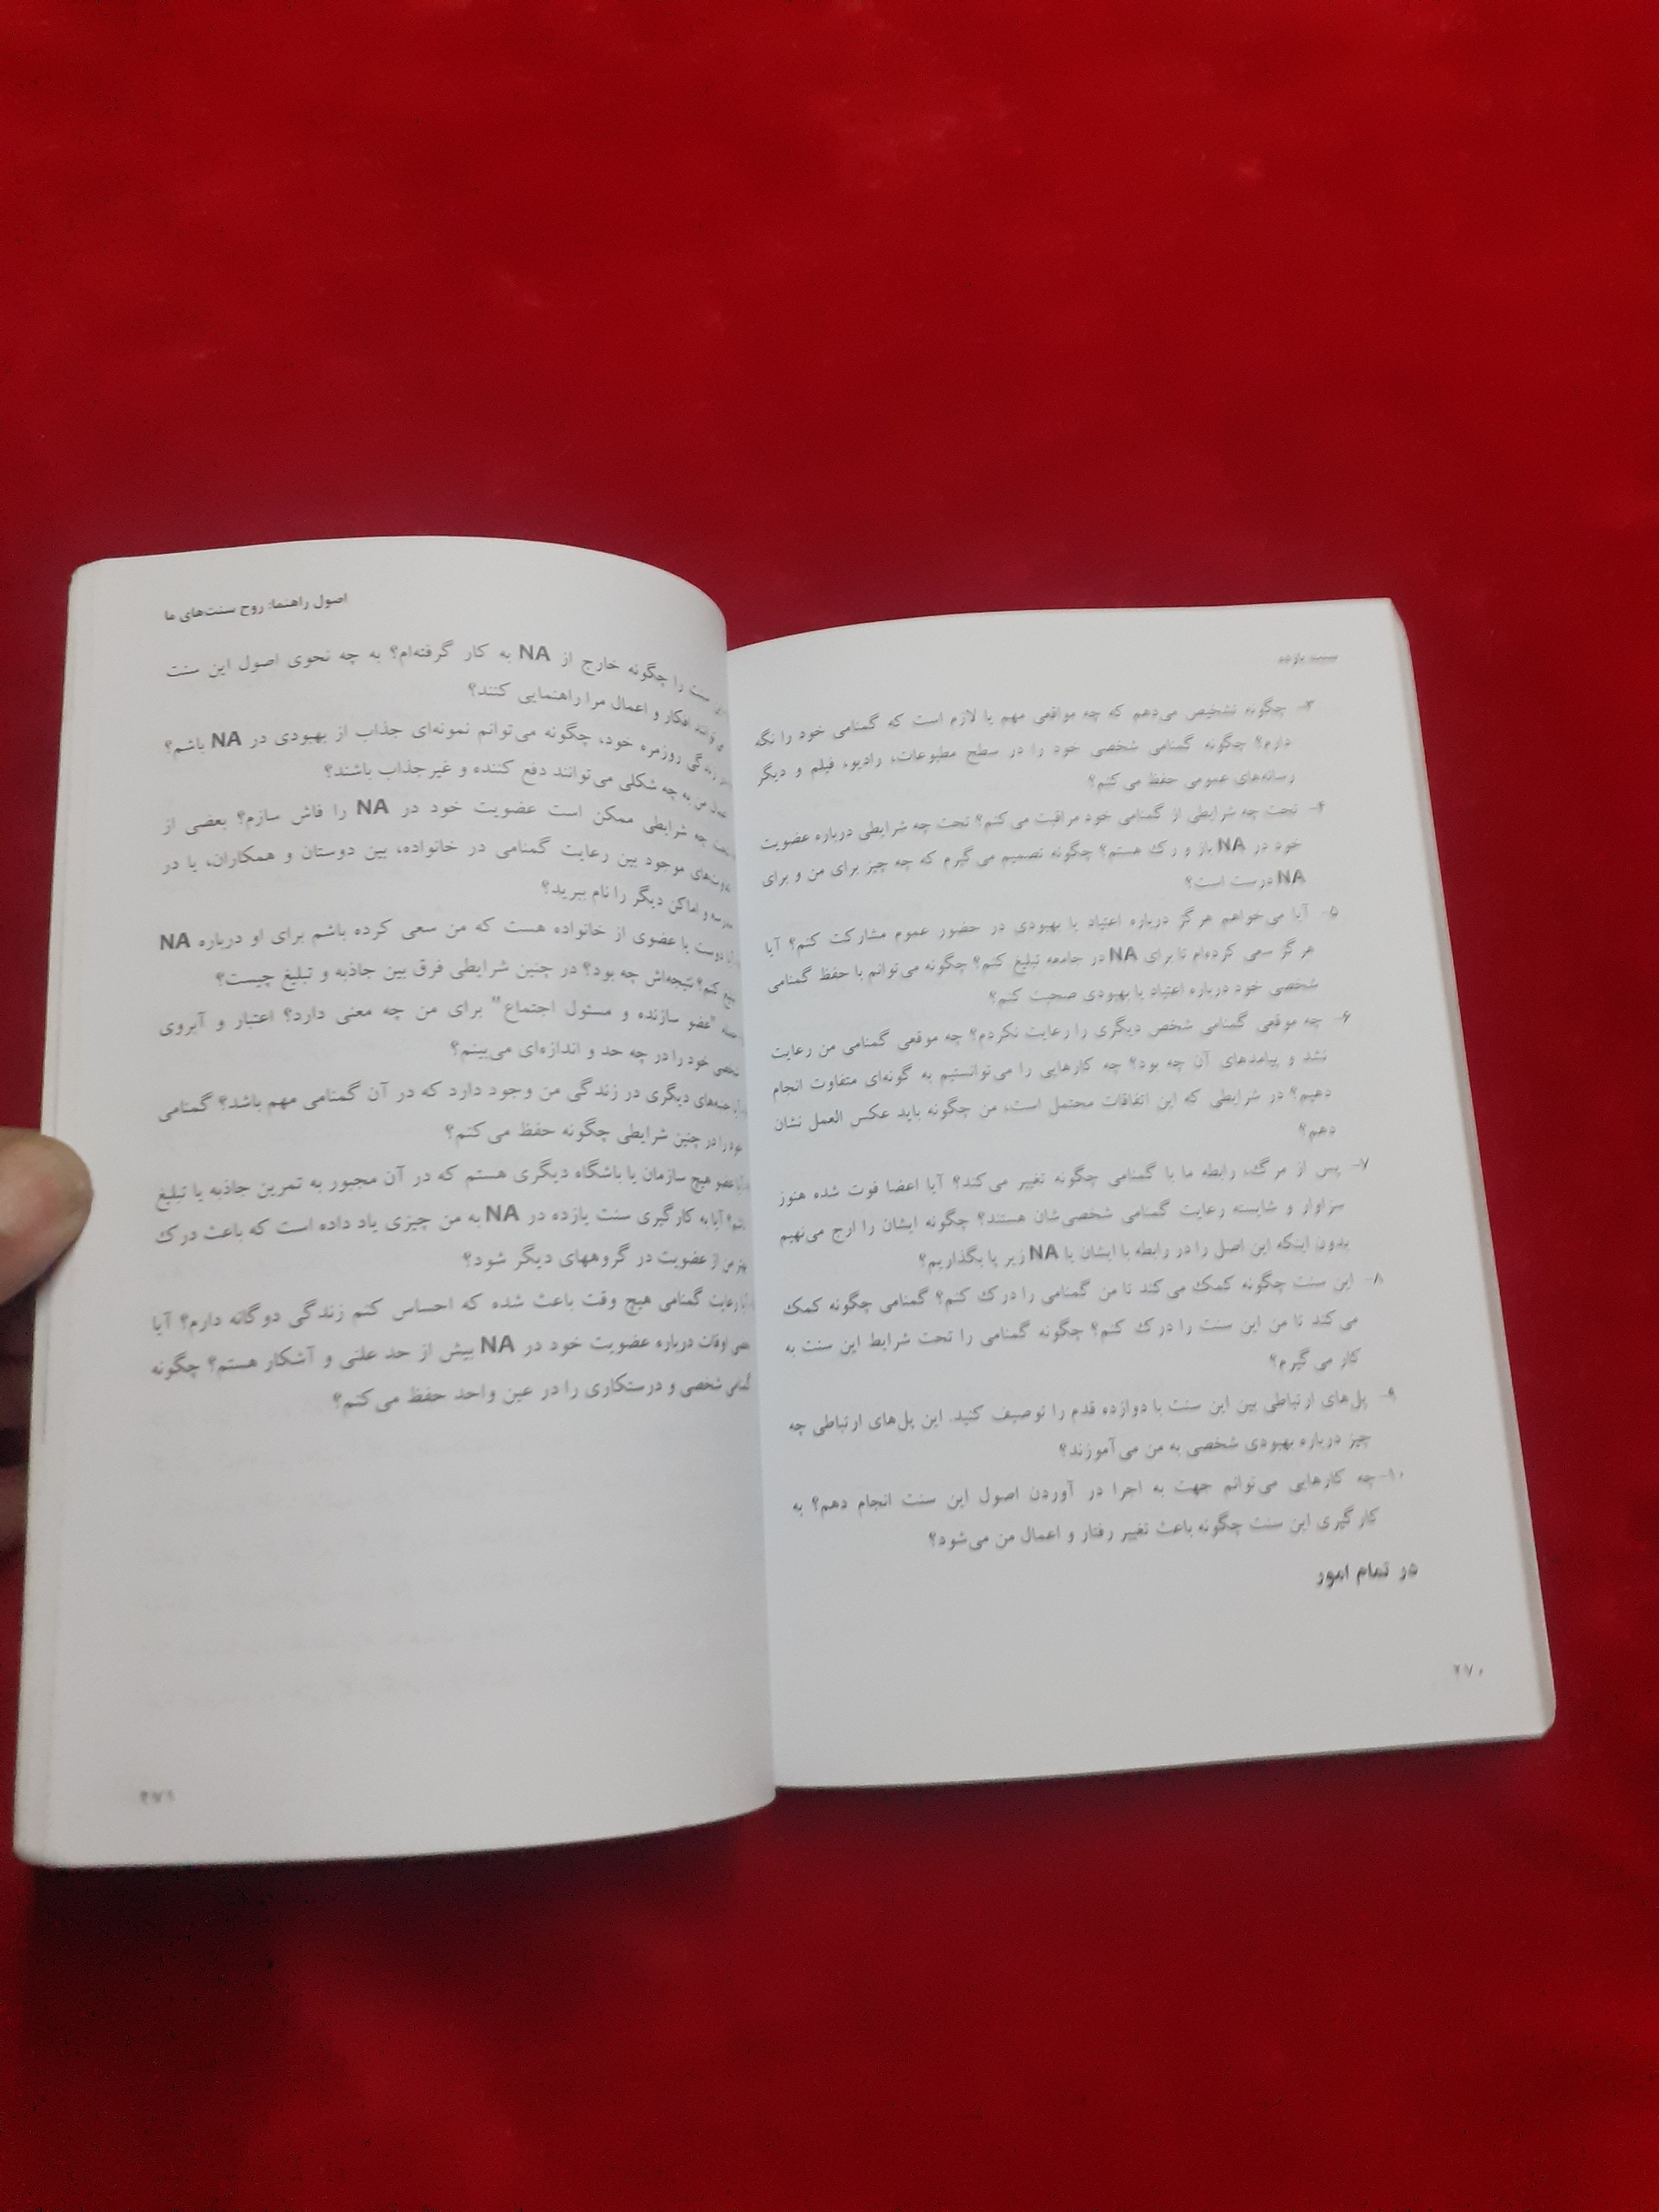 سنت یازده
۳- چگونه تشخیص می‌دهم که چه مواقعی مهم یا لازم است که گمنامی خود را نگه
دارم؟ چگونه گمنامی شخصی خود را در سطح مطبوعات، رادیو، فیلم و دیگر
رسانه‌های عمومی حفظ می کنم؟
۴- تحت چه شرایطی از گمنامی خود مراقبت می کنم؟ تحت چه شرایطی درباره عضویت
خود در NA باز و رک هستم؟ چگونه تصمیم می گیرم که چه چیز برای من و برای
NA درست است؟
۵- آیا می‌خواهم هرگز درباره اعتیاد یا بهبودی در حضور عموم مشارکت کنم؟ آیا
هرگز سعی کرده‌ام تا برای NA در جامعه تبلیغ کنم؟ چگونه می‌توانم با حفظ گمنامی
شخصی خود درباره اعتیاد یا بهبودی صحبت کنم؟
۶- چه موقعی گمنامی شخص دیگری را رعایت نکردم؟ چه موقعی گمنامی من رعایت
نشد و پیامدهای آن چه بود؟ چه کارهایی را می‌توانستیم به گونه‌ای متفاوت انجام
دهیم؟ در شرایطی که این اتفاقات محتمل است، من چگونه باید عکس العمل نشان
دهم؟
۷- پس از مرگ، رابطه ما با گمنامی چگونه تغییر می‌کند؟ آیا اعضا فوت شده هنوز
سزاوار و شایسته رعایت گمنامی شخصی‌شان هستند؟ چگونه ایشان را ارج می‌نهیم
بدون اینکه این اصل را در رابطه با ایشان یا NA زیر پا بگذاریم؟
۸- این سنت چگونه کمک می‌کند تا من گمنامی را درک کنم؟ گمنامی چگونه کمک
می‌کند تا من این سنت را درک کنم؟ چگونه گمنامی را تحت شرایط این سنت به
کار می گیرم؟
۹- پل‌های ارتباطی بین این سنت با دوازده قدم را توصیف کنید. این پل‌های ارتباطی چه
چیز درباره بهبودی شخصی به من می‌آموزند؟
۱۰- چه کارهایی می‌توانم جهت به اجرا در آوردن اصول این سنت انجام دهم؟ به
کارگیری این سنت چگونه باعث تغییر رفتار و اعمال من می‌شود؟
در تمام امور
۲۷۰
اصول راهنما: روح سنت‌های ما
سنت را چگونه خارج از NA به کار گرفته‌ام؟ به چه نحوی اصول این سنت
افکار و اعمال مرا راهنمایی کنند؟
روزمره خود، چگونه می‌توانم نمونه‌ای جذاب از بهبودی در NA باشم؟
من به چه شکلی می‌توانند دفع کننده و غیرجذاب باشند؟
چه شرایطی ممکن است عضویت خود در NA را فاش سازم؟ بعضی از
موجود بین رعایت گمنامی در خانواده، بین دوستان و همکاران، یا در
و اماکن دیگر را نام ببرید؟
دوست یا عضوی از خانواده هست که من سعی کرده باشم برای او درباره NA
کنم؟ نتیجه‌اش چه بود؟ در چنین شرایطی فرق بین جاذبه و تبلیغ چیست؟
"عضو سازنده و مسئول اجتماع" برای من چه معنی دارد؟ اعتبار و آبروی
خود را در چه حد و اندازه‌ای می‌بینم؟
جنبه‌های دیگری در زندگی من وجود دارد که در آن گمنامی مهم باشد؟ گمنامی
را در چنین شرایطی چگونه حفظ می کنم؟
عضو هیچ سازمان یا باشگاه دیگری هستم که در آن مجبور به تمرین جاذبه یا تبلیغ
آیا به کارگیری سنت یازده در NA به من چیزی یاد داده است که باعث درک
من از عضویت در گروههای دیگر شود؟
رعایت گمنامی هیچ وقت باعث شده که احساس کنم زندگی دوگانه دارم؟ آیا
اوقات درباره عضویت خود در NA بیش از حد علنی و آشکار هستم؟ چگونه
گمنامی شخصی و درستکاری را در عین واحد حفظ می‌کنم؟
۲۷۱